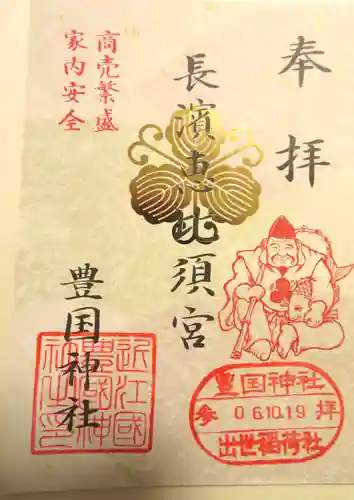 奉拝
長濱恵比須宮
商売繁盛
家内安全
豊国神社
近江國
豊國神
社之印
豊国神社
参 06.10.19 拝
出世稲荷社